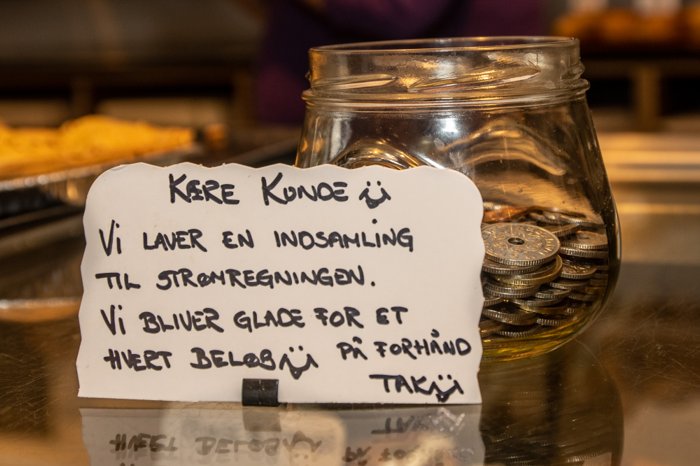 KÆRE KUNDE
VI LAVER EN INDSAMLING
TIL STRØMREGNINGEN.
VI BLIVER GLADE FOR ET
HVERT BELØB PÅ FORHÅND
TAK